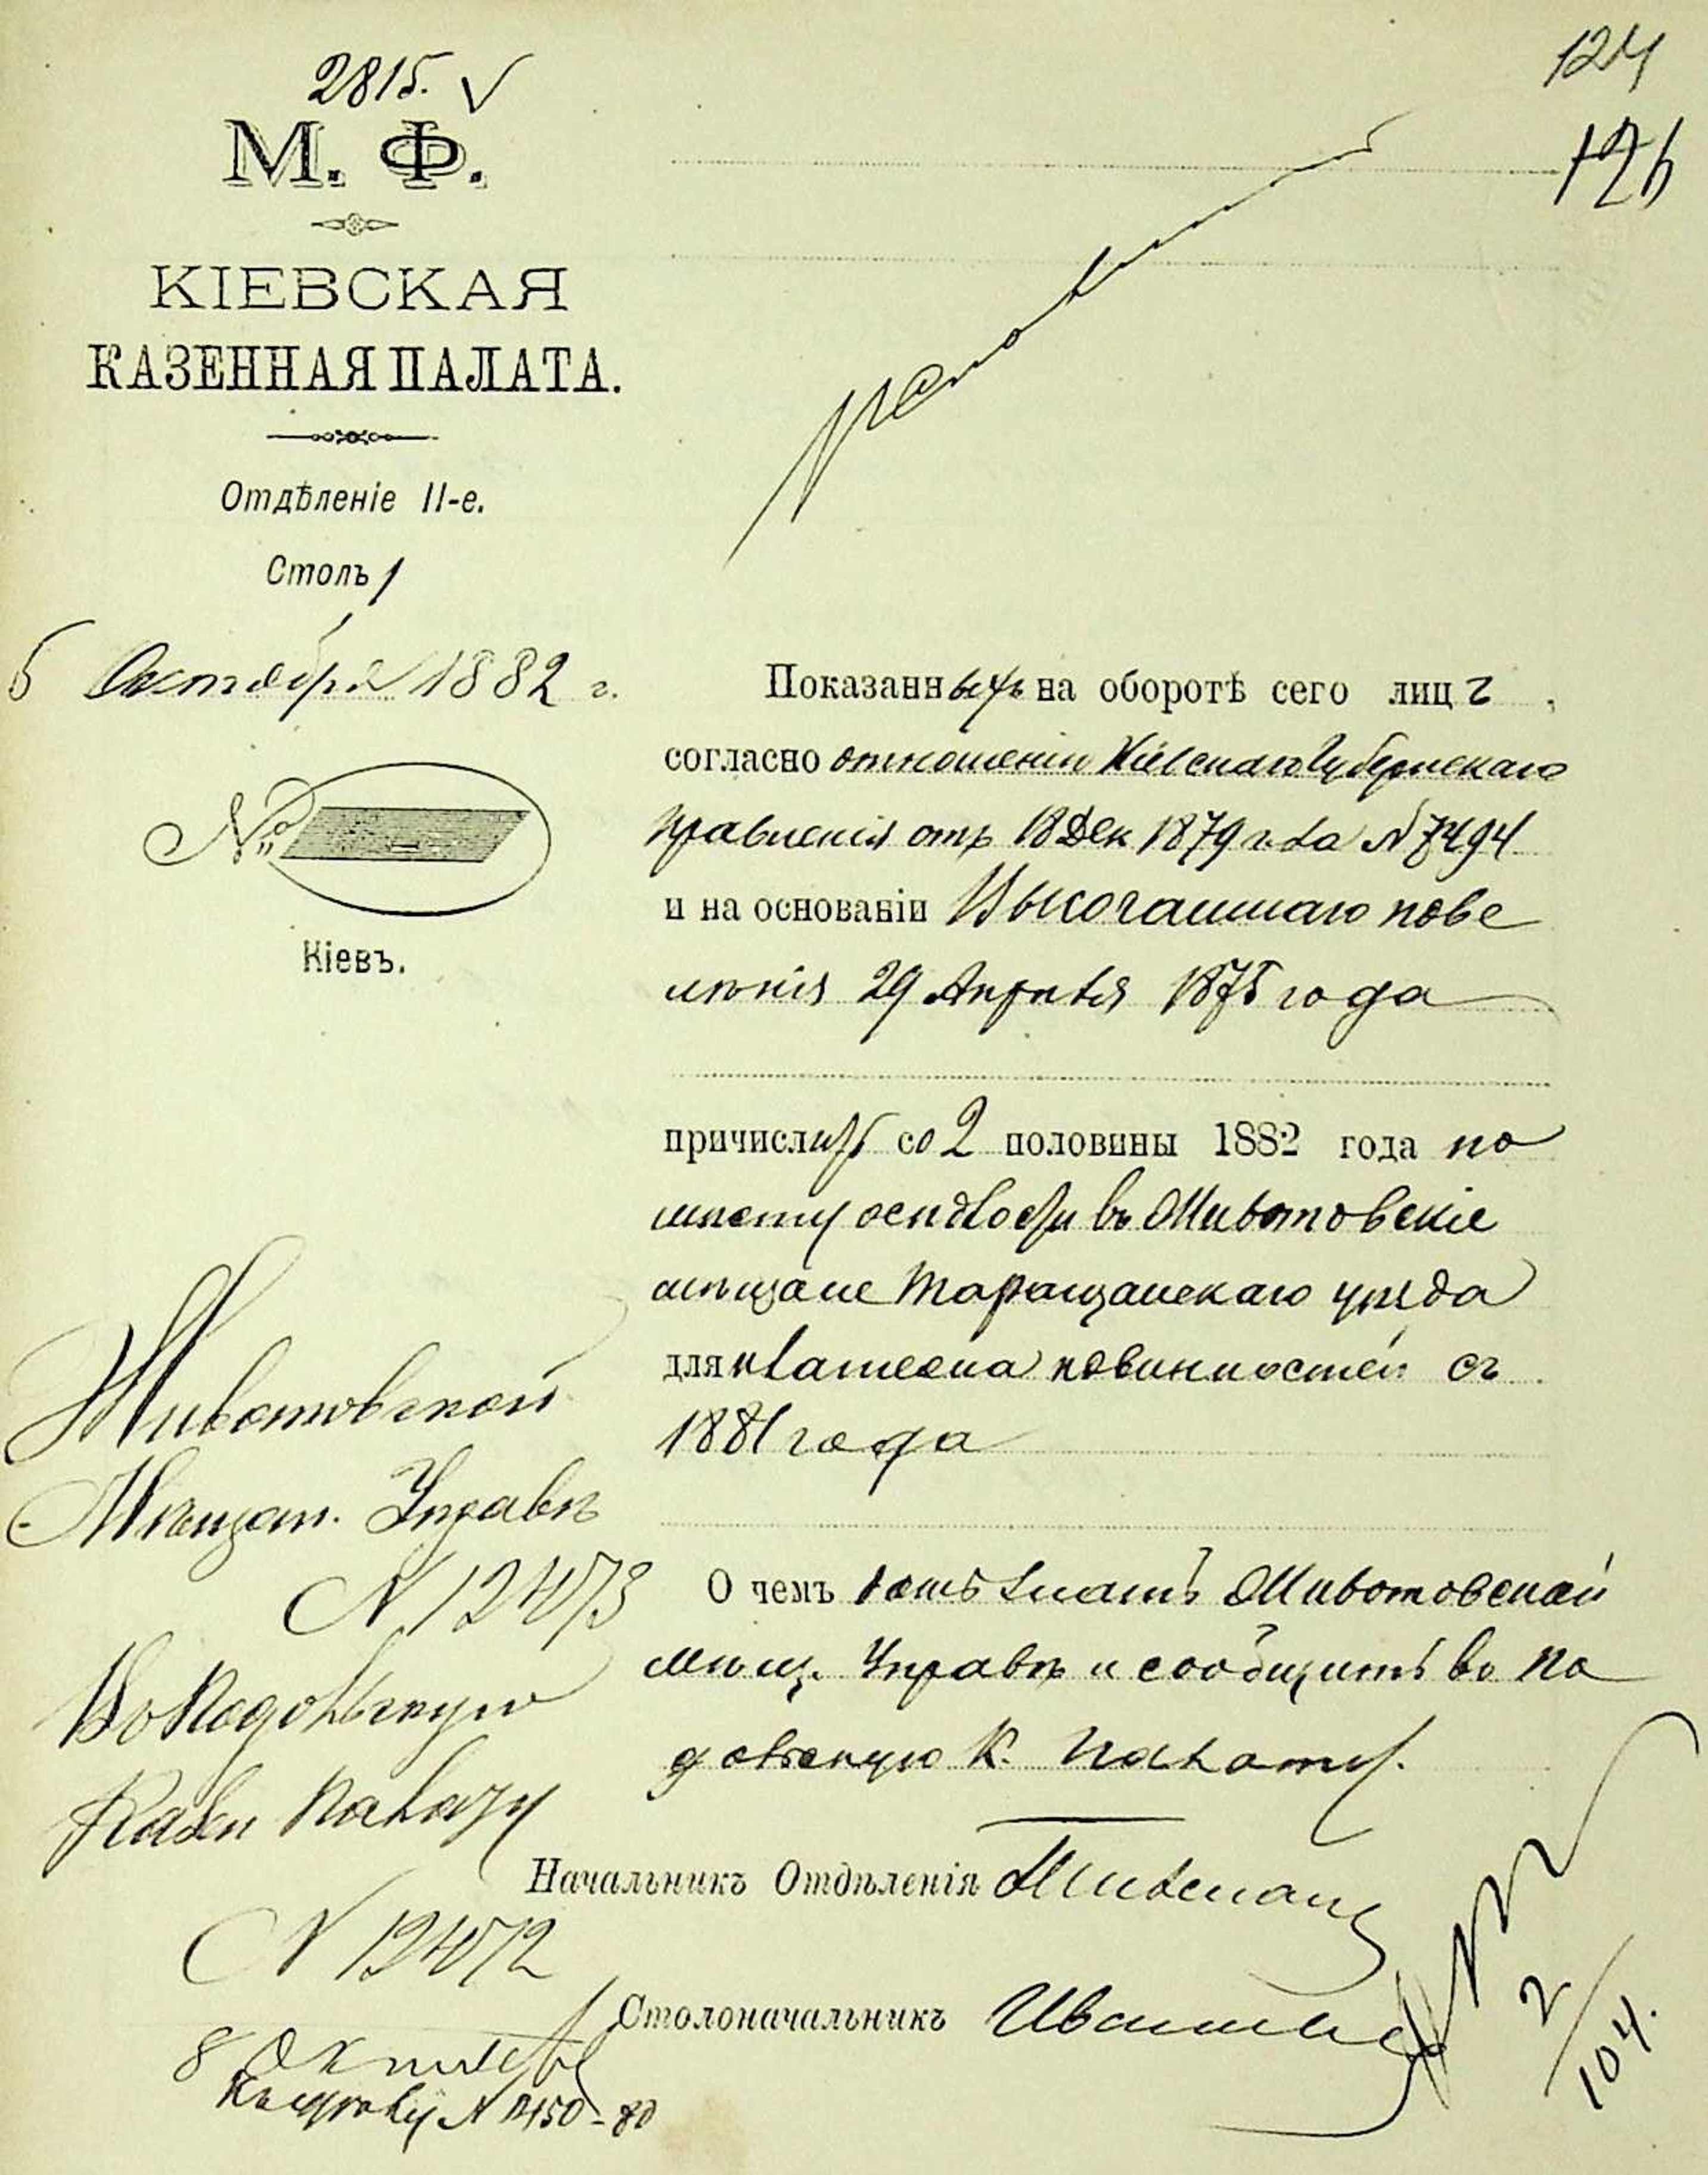 2815.
124
126
М. Ф.
КІЕВСКАЯ
КАЗЕННАЯ ПАЛАТА.
Отдѣленіе II-е.
Столъ 1
5 Октября 1882 г.
№
Кіевъ.
Показанныхъ на оборотѣ сего лицъ,
согласно отношенію Кіевскаго Губернскаго
Правленія отъ 18 Дек 1879 г. за № 7494
и на основаніи Высочайшаго пове
лѣнія 29 Апрѣля 1875 года
причислить со 2 половины 1882 года по
мѣсту осѣдлости въ Животовскіе
мѣщане Таращанскаго уѣзда
для платежа повинностей съ
1881 года
О чемъ дать знать Животовской
мѣщ. Управѣ и сообщить въ По
дольскую К. Палату.
Животовской
Мѣщан. Управѣ
№ 12473
Въ Подольскую
Казен Палату
№ 12472
Начальникъ Отдѣленія
Столоначальникъ
8 Октября
№ 1450-80
2/104.